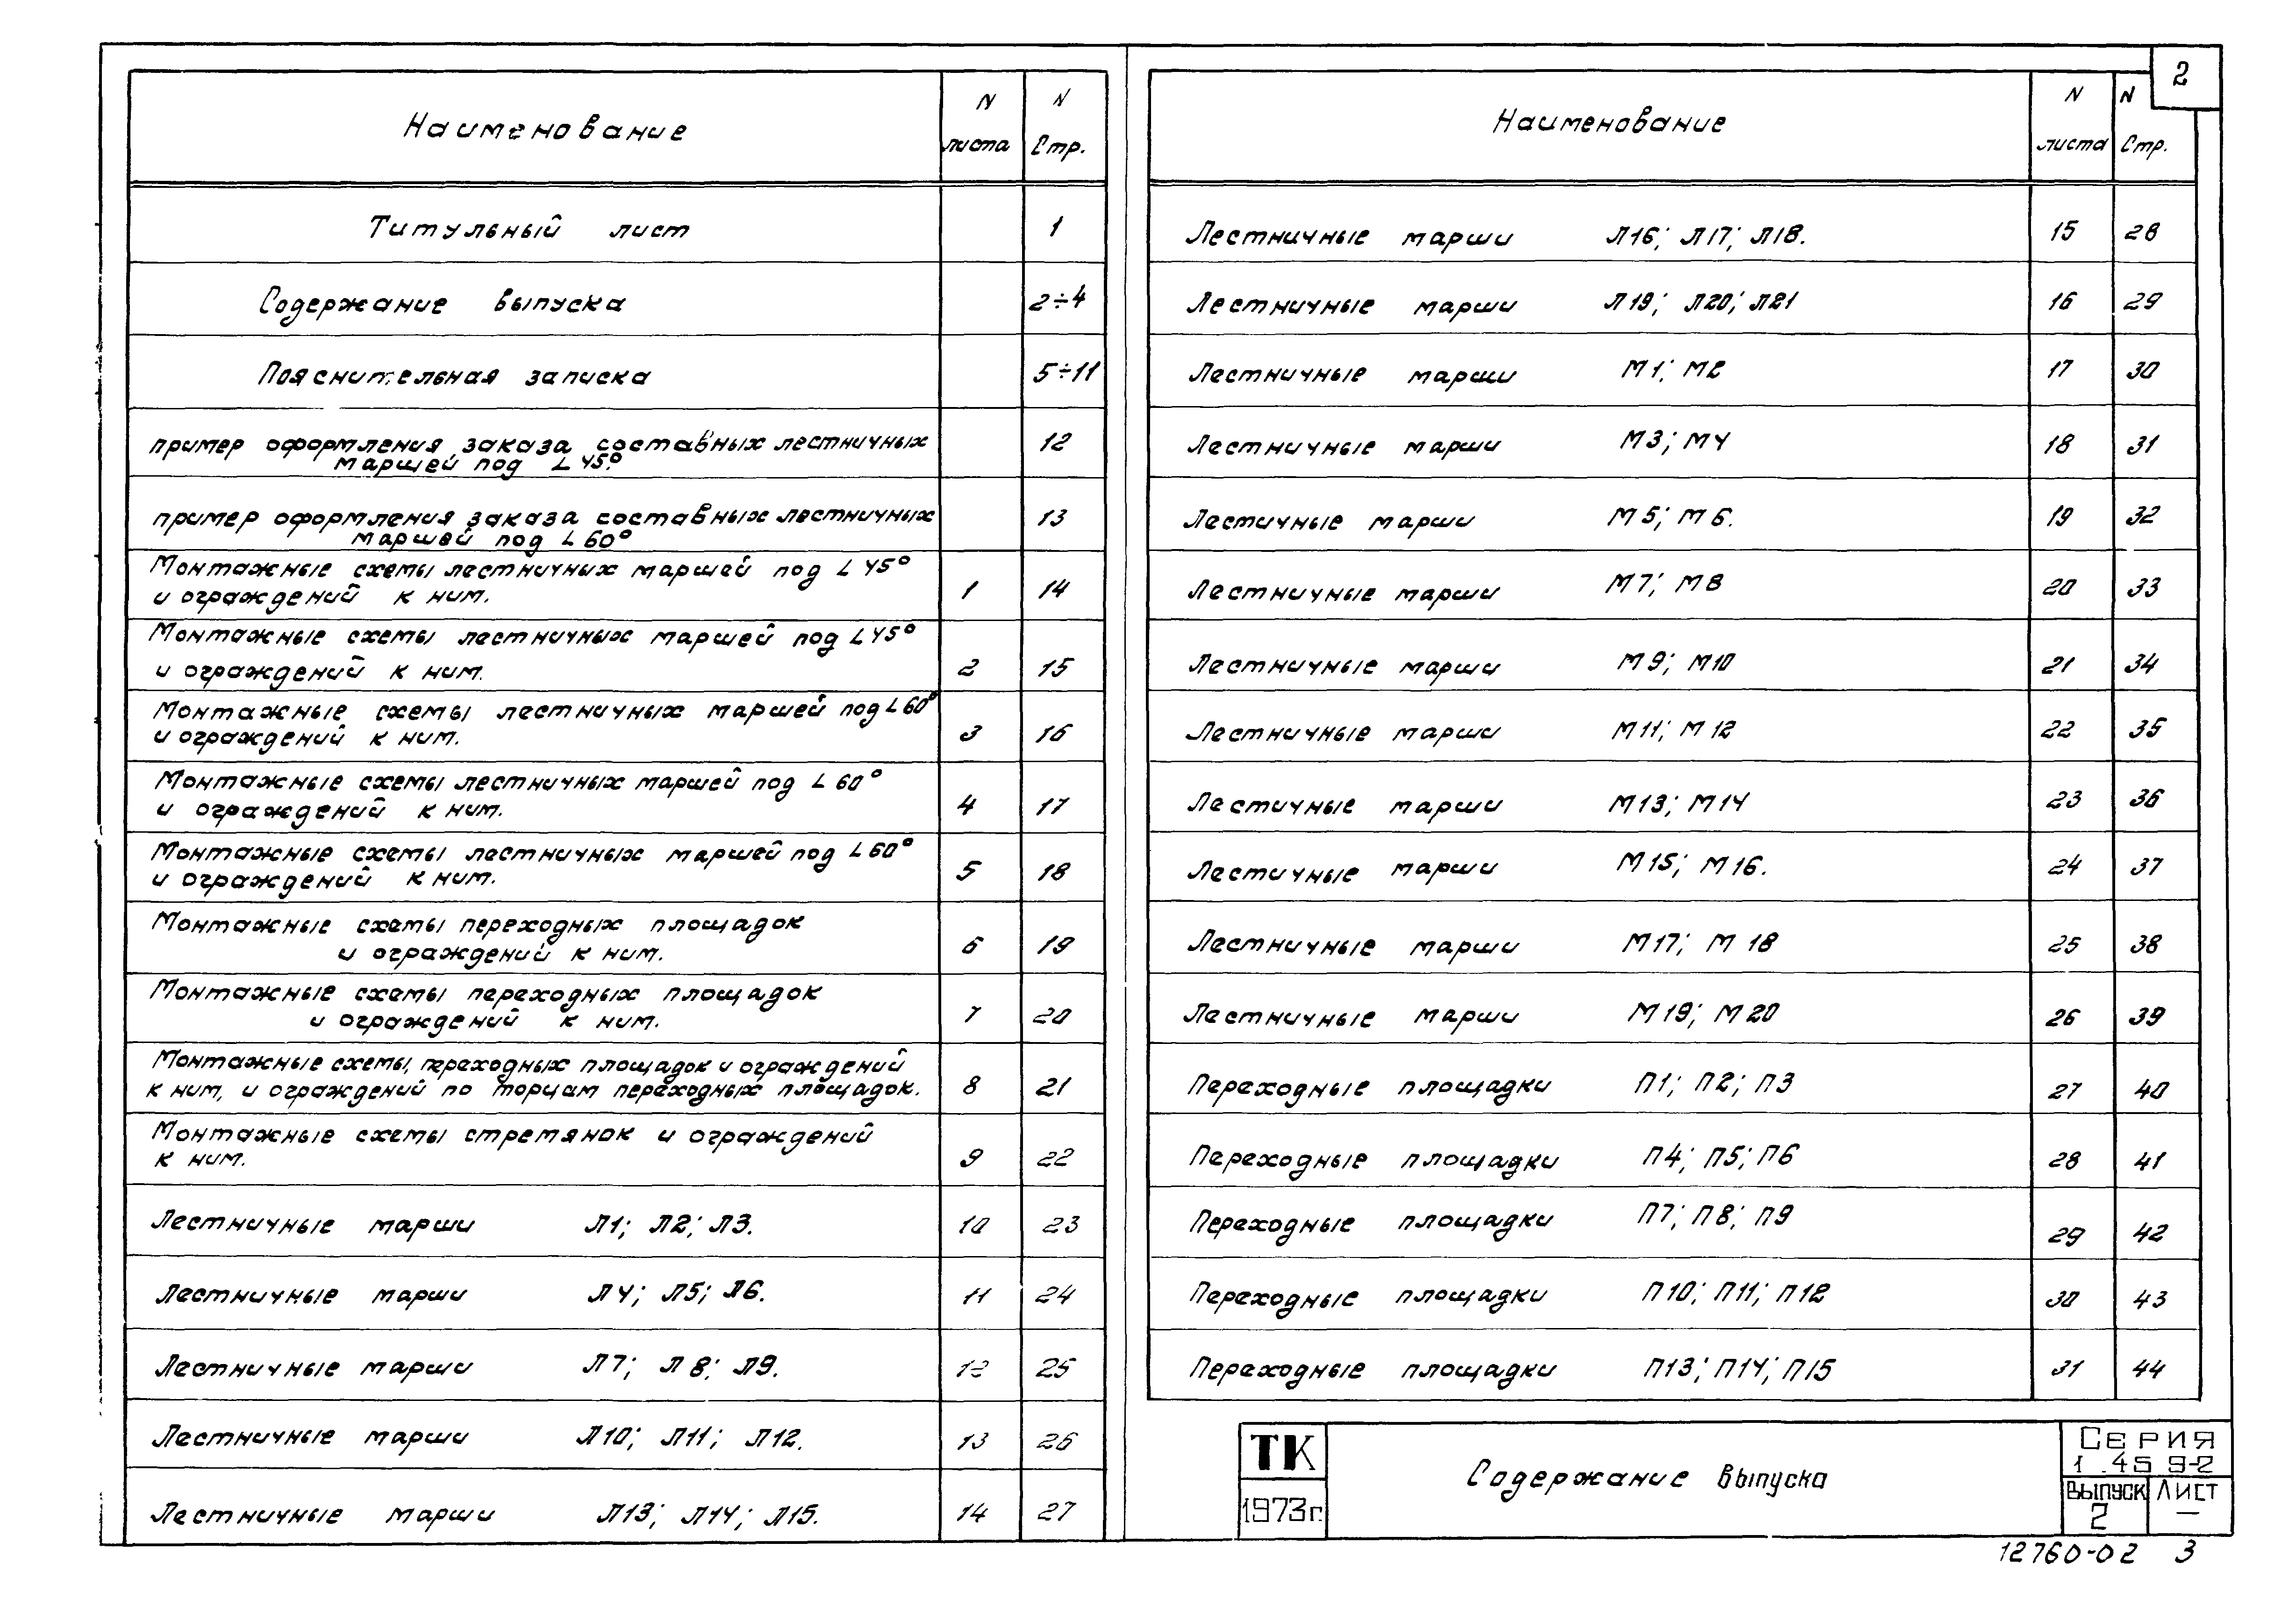 2
Наименование N листа N Стр.
Титульный лист 1
Содержание выпуска 2÷4
Пояснительная записка 5÷11
пример оформления заказа составных лестничных
маршей под ∠45° 12
пример оформления заказа составных лестничных 13
маршей под ∠60°
Монтажные схемы лестничных маршей под ∠45°
и ограждений к ним. 1 14
Монтажные схемы лестничных маршей под ∠45°
и ограждений к ним. 2 15
Монтажные схемы лестничных маршей под ∠60°
и ограждений к ним. 3 16
Монтажные схемы лестничных маршей под ∠60°
и ограждений к ним. 4 17
Монтажные схемы лестничных маршей под ∠60°
и ограждений к ним. 5 18
Монтажные схемы переходных площадок
и ограждений к ним. 6 19
Монтажные схемы переходных площадок
и ограждений к ним. 7 20
Монтажные схемы, переходных площадок и ограждений
к ним, и ограждений по торцам переходных площадок. 8 21
Монтажные схемы стремянок и ограждений
к ним. 9 22
Лестничные марши Л1; Л2; Л3. 10 23
Лестничные марши Л4; Л5; Л6. 11 24
Лестничные марши Л7; Л8; Л9. 12 25
Лестничные марши Л10; Л11; Л12. 13 26
Лестничные марши Л13; Л14; Л15. 14 27
Наименование N листа N Стр.
Лестничные марши Л16; Л17; Л18. 15 28
Лестничные марши Л19; Л20; Л21 16 29
Лестничные марши М1; М2 17 30
Лестничные марши М3; М4 18 31
Лестичные марши М5; М6. 19 32
Лестничные марши М7; М8 20 33
Лестничные марши М9; М10 21 34
Лестничные марши М11; М12 22 35
Лестичные марши М13; М14 23 36
Лестичные марши М15; М16. 24 37
Лестничные марши М17; М18 25 38
Лестничные марши М19; М20 26 39
Переходные площадки П1; П2; П3 27 40
Переходные площадки П4; П5; П6 28 41
Переходные площадки П7; П8; П9 29 42
Переходные площадки П10; П11; П12 30 43
Переходные площадки П13; П14; П15 31 44
ТК
1973г.
Содержание выпуска
Серия
1.459-2
Выпуск Лист
2 —
12760-02 3